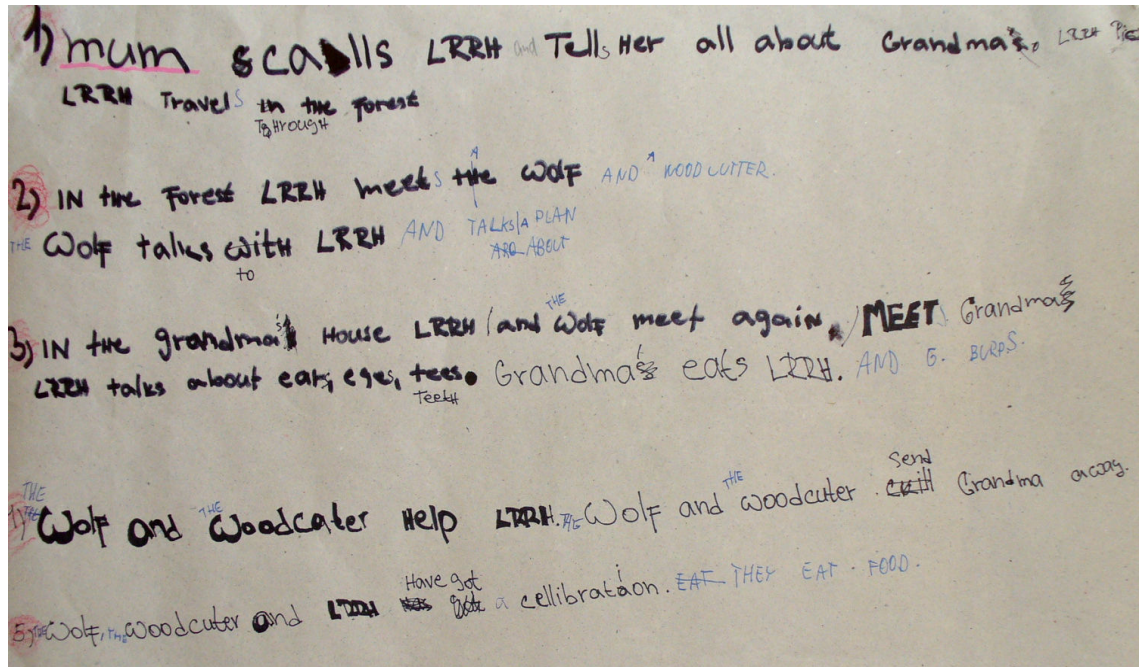 1) mum calls LRRH and Tells Her all about Grandma. LRRH
LRRH Travels in the Forest
THrougH
A
2) IN the Forest LRRH meets the Wolf AND A WOODCUTTER.
THE Wolf talks with LRRH AND TALKS/A PLAN
to ABOUT
THE
3) IN tHe grandma's House LRRH (and Wolf meet again.) MEET Grandma
LRRH talks about ears, eyes, tees. Grandma eats LRRH. AND G. BURPS.
Teeth
THE THE Send
Wolf and THE Woodcater Help LRRH. THE Wolf and woodcuter Grandma away.
Have got
5) THE Wolf, THE Woodcuter and LRRH a cellibration. EAT THEY EAT FOOD.